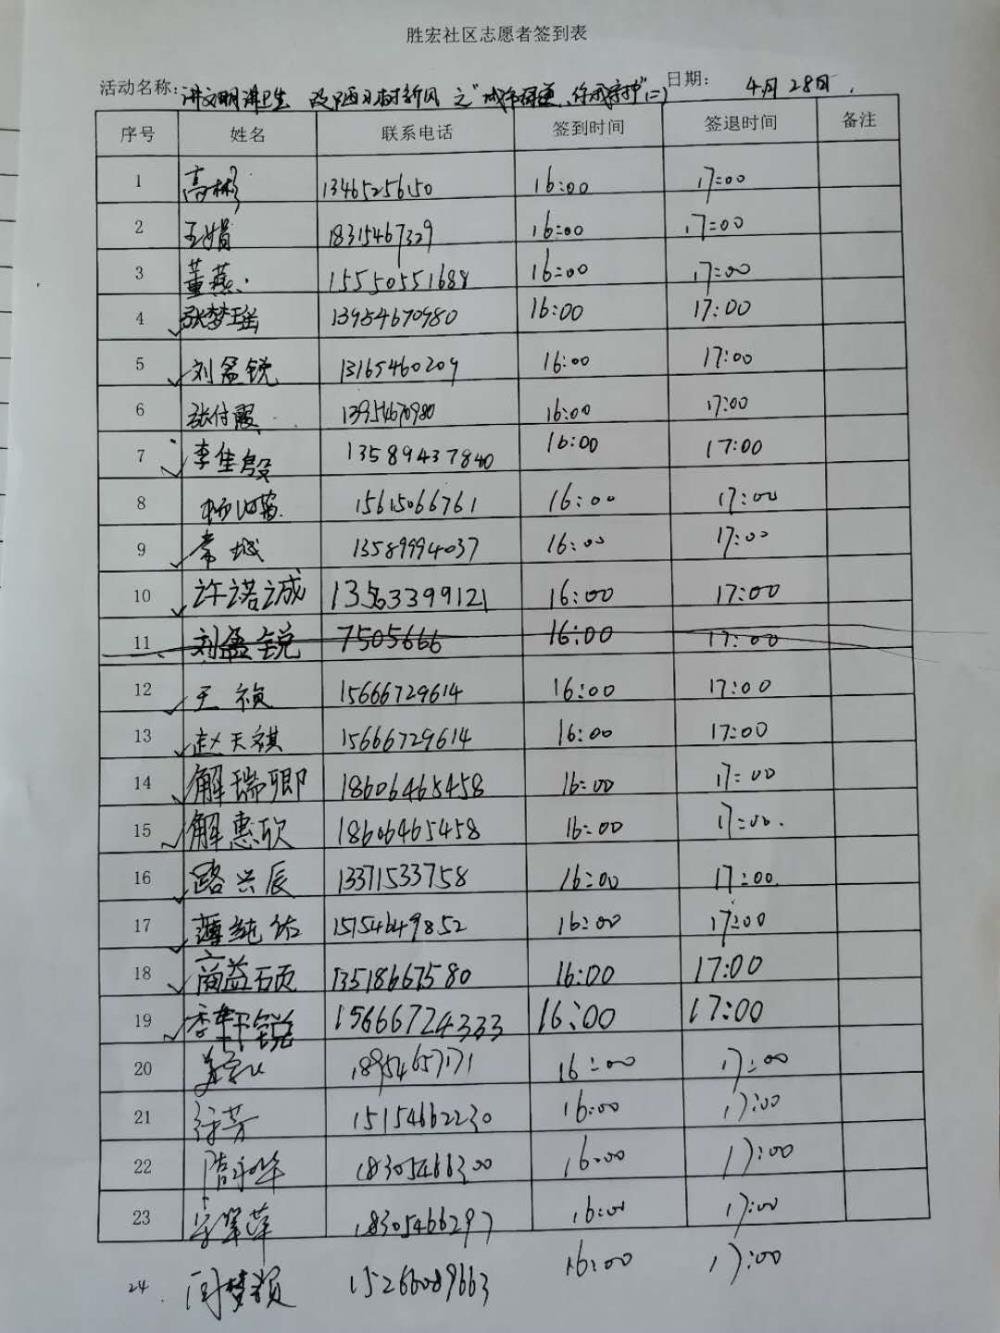 胜宏社区志愿者签到表
活动名称: 讲文明讲卫生 改陋习树新风 之" 你我守护"(二) 日期: 4月28日.
序号 姓名 联系电话 签到时间 签退时间 备注
1 高彬 13465256150 16:00 17:00
2 王娟 18315467329 16:00 17:00
3 董燕 15550551688 16:00 17:00
4 张梦瑶 13954670980 16:00 17:00
5 刘孟锐 13165460209 16:00 17:00
6 张付霞 13954670980 16:00 17:00
7 李佳殷 13589437840 16:00 17:00
8 15615066761 16:00 17:00
9 常城 13589994037 16:00 17:00
10 许诺诚 13563399121 16:00 17:00
11 刘孟锐 7505666 16:00 17:00
12 王祯 15666729614 16:00 17:00
13 赵天祺 15666729614 16:00 17:00
14 解瑞卿 18606465458 16:00 17:00
15 解惠欣 18606465458 16:00 17:00.
16 路兴辰 13371533758 16:00 17:00
17 薄纯佑 15154649852 16:00 17:00
18 商益硕 13518667580 16:00 17:00
19 李轩锐 15666724333 16:00 17:00
20 18954657171 16:00 17:00
21 徐芳 15154662230 16:00 17:00
22 18305466300 16:00 17:00
23 18305466297 16:00 17:00
24. 闫梦颖 15266089663 16:00 17:00